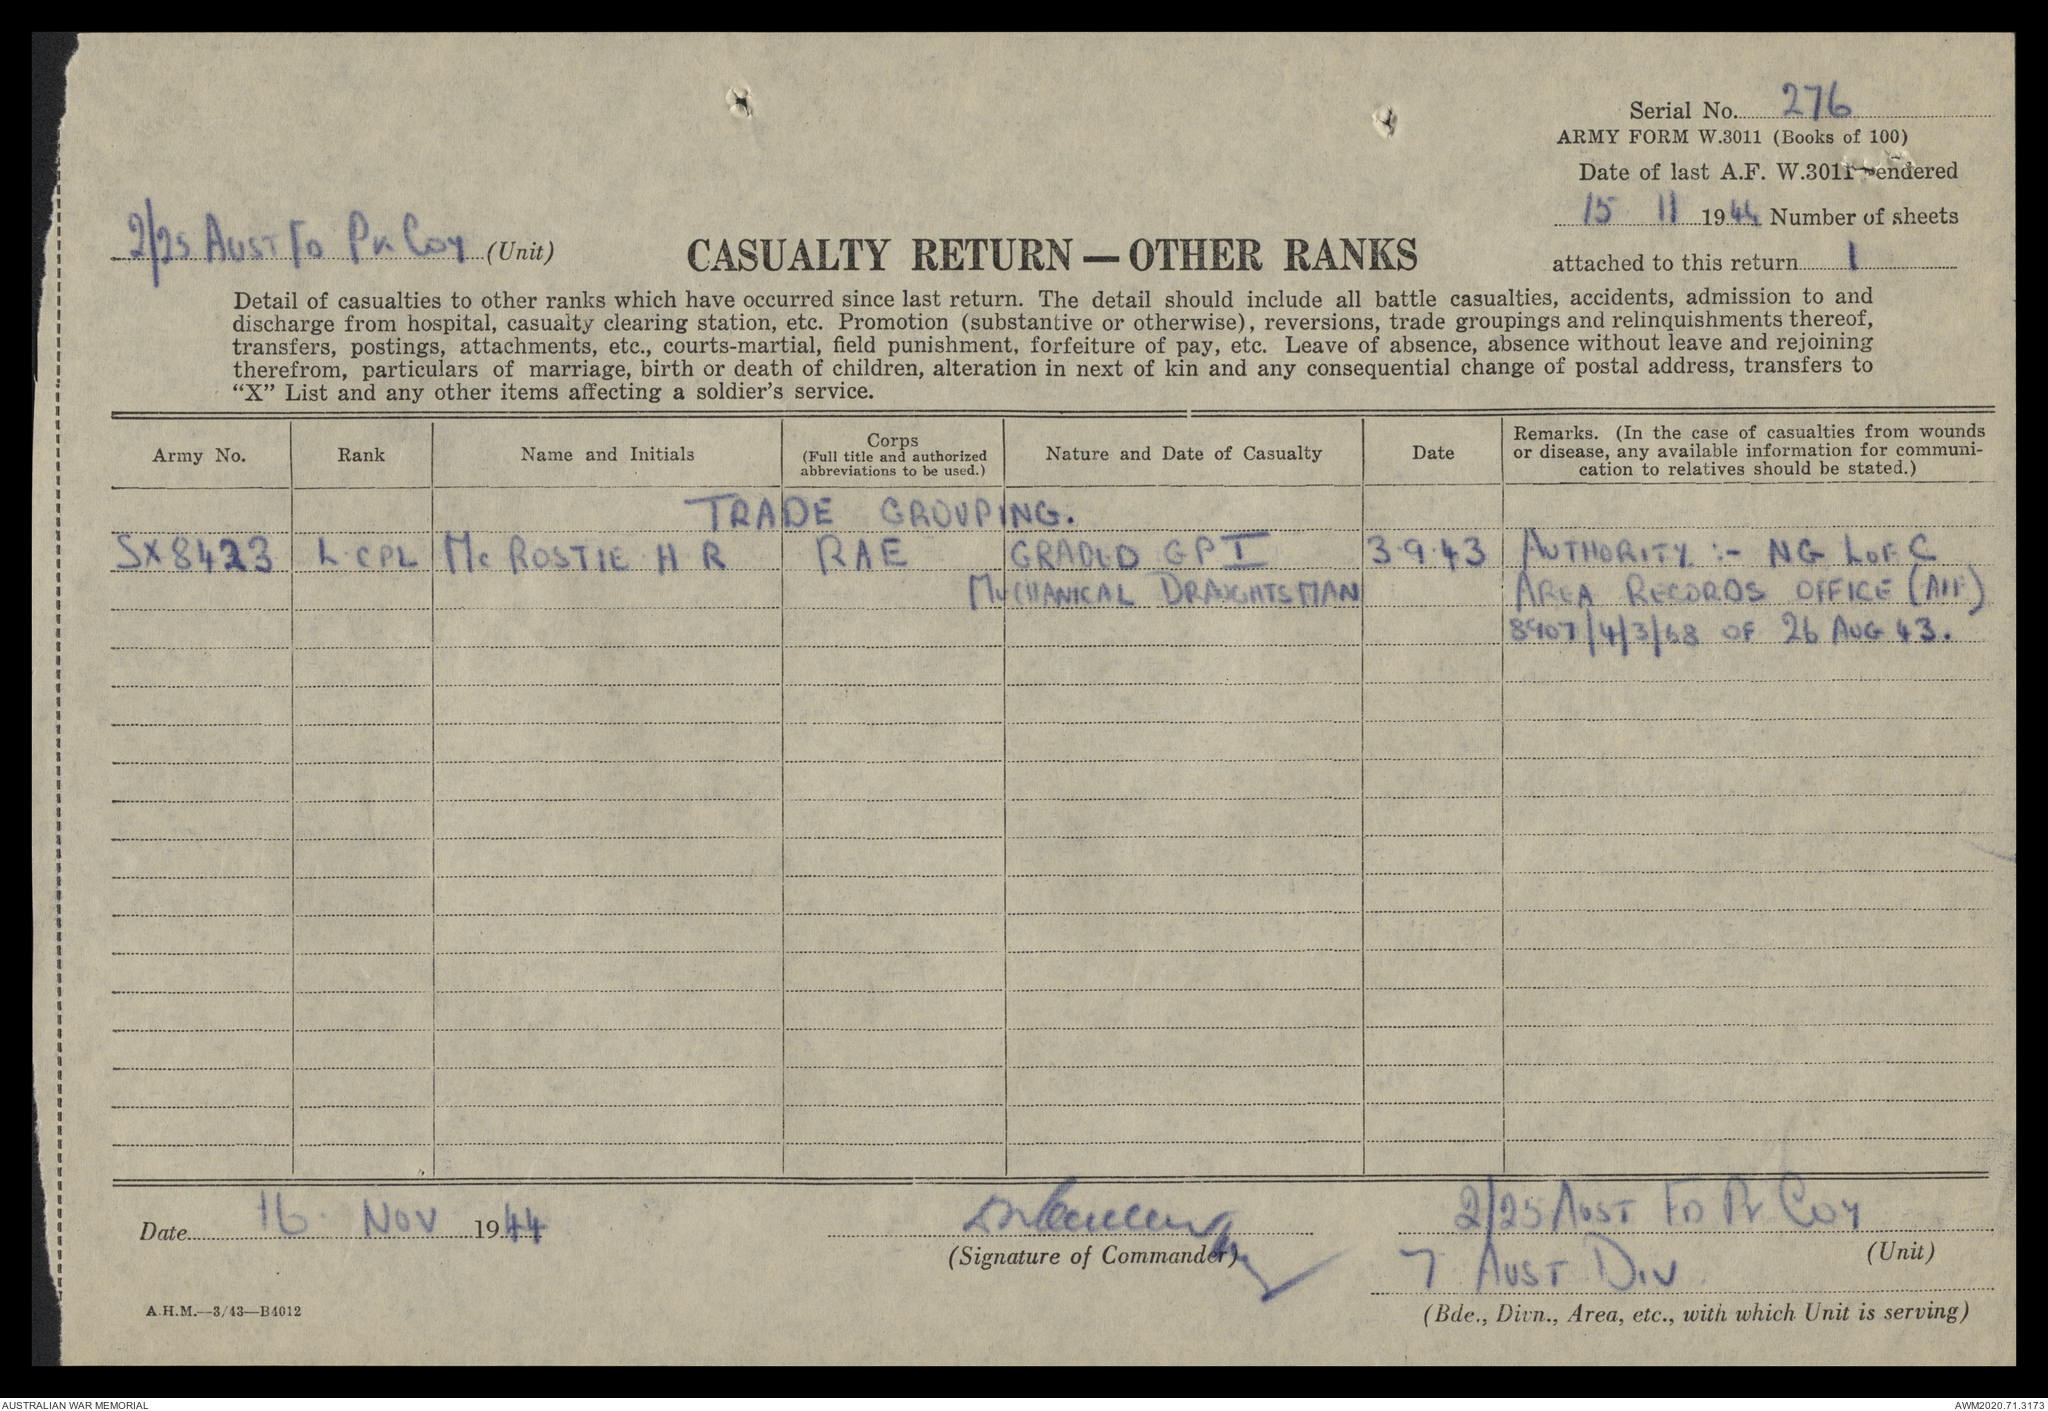 Serial No. 276
ARMY FORM W.3011 (Books of 100)
Date of last A.F. W.3011 rendered
15 11 1944 Number of sheets
attached to this return 1
2/25 AUST FD PK COY (Unit)
CASUALTY RETURN — OTHER RANKS
Detail of casualties to other ranks which have occurred since last return. The detail should include all battle casualties, accidents, admission to and
discharge from hospital, casualty clearing station, etc. Promotion (substantive or otherwise), reversions, trade groupings and relinquishments thereof,
transfers, postings, attachments, etc., courts-martial, field punishment, forfeiture of pay, etc. Leave of absence, absence without leave and rejoining
therefrom, particulars of marriage, birth or death of children, alteration in next of kin and any consequential change of postal address, transfers to
“X” List and any other items affecting a soldier’s service.
Army No. Rank Name and Initials Corps (Full title and authorized abbreviations to be used.) Nature and Date of Casualty Date Remarks. (In the case of casualties from wounds or disease, any available information for communi-cation to relatives should be stated.)
TRADE GROUPING.
SX8423 L·CPL McROSTIE H R RAE GRADED GP I 3·9·43 AUTHORITY :- NG L OF C
MECHANICAL DRAUGHTSMAN AREA RECORDS OFFICE (AIF)
8907/4/3/68 OF 26 AUG 43.
Date 16. NOV 1944
(Signature of Commander)
2/25 AUST FD PK COY
(Unit)
7 AUST DIV
(Bde., Divn., Area, etc., with which Unit is serving)
A.H.M.—3/43—B4012
AUSTRALIAN WAR MEMORIAL
AWM2020.71.3173